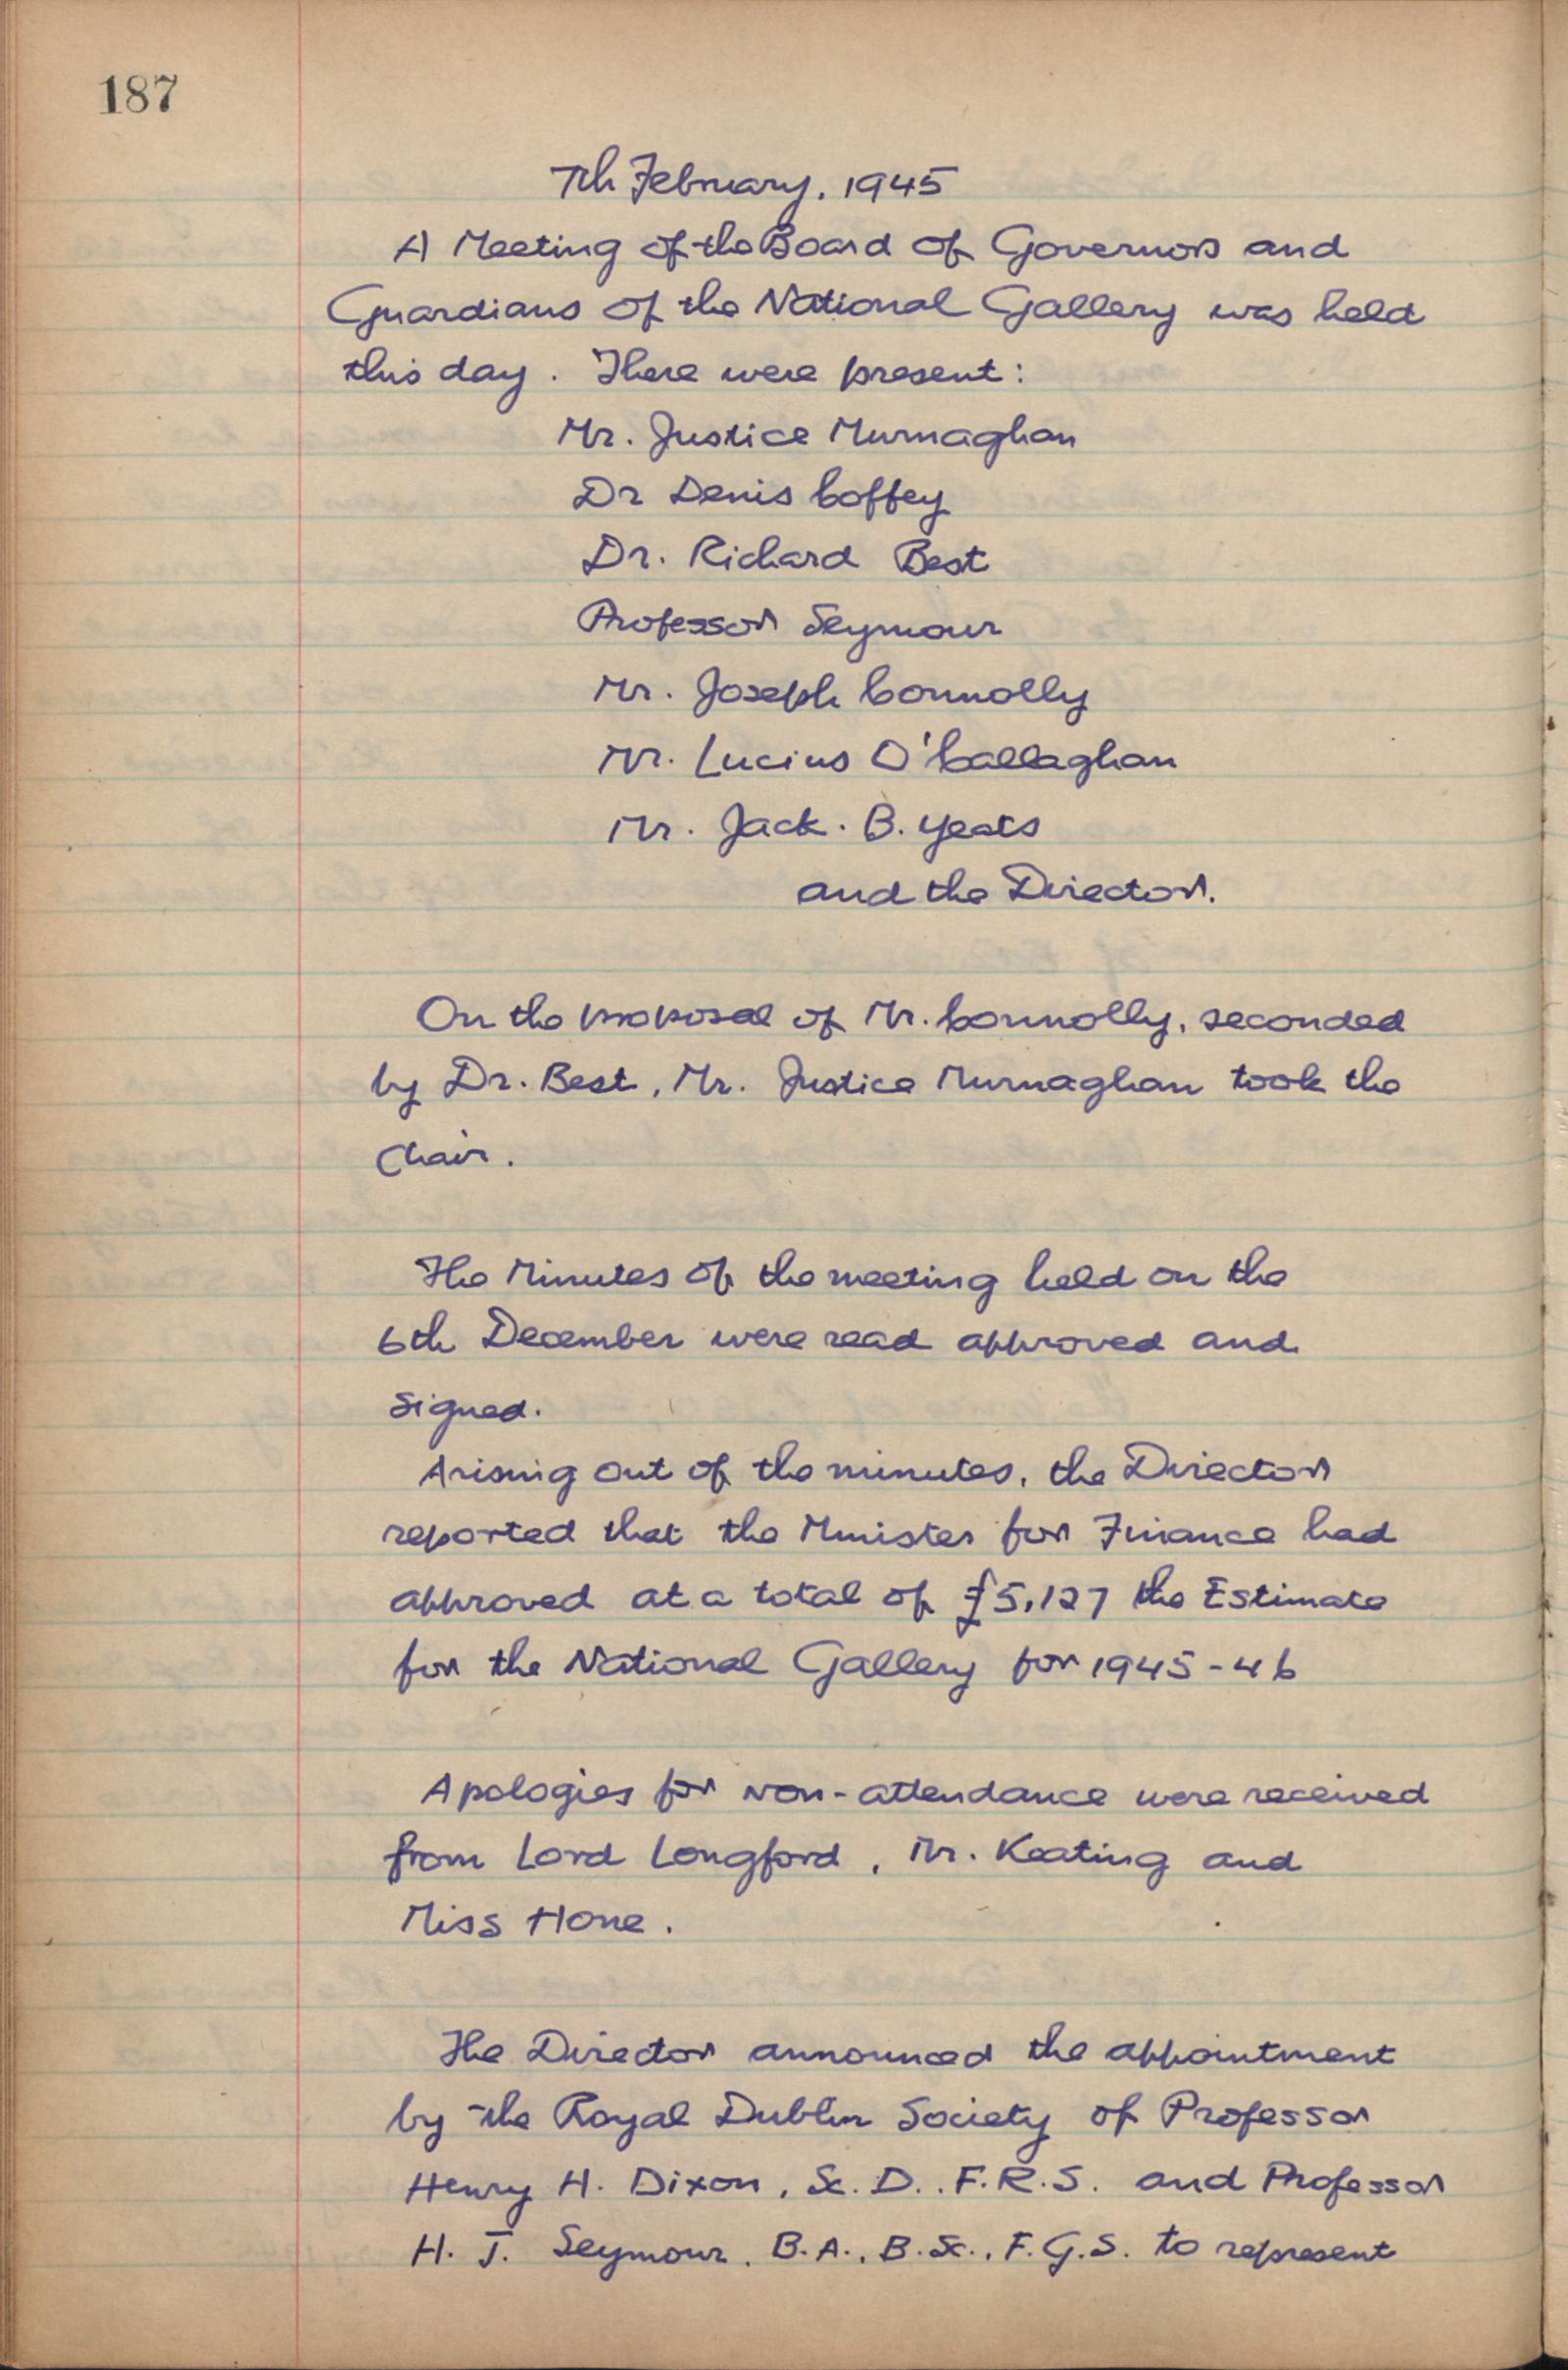 187
7th February, 1945
A Meeting of the Board of Governors and
Guardians of the National Gallery was held
this day. There were present:
Mr. Justice Murnaghan
Dr Denis Coffey
Dr. Richard Best
Professor Seymour
Mr. Joseph Connolly
Mr. Lucius O'Callaghan
Mr. Jack. B. Yeats
and the Director.
On the proposal of Mr. Connolly, seconded
by Dr. Best, Mr. Justice Murnaghan took the
Chair.
The Minutes of the meeting held on the
6th December were read approved and
signed.
Arising out of the minutes, the Director
reported that the Minister for Finance had
approved at a total of £5,127 the Estimate
for the National Gallery for 1945-46
Apologies for non-attendance were received
from Lord Longford, Mr. Keating and
Miss Hone.
The Director announced the appointment
by the Royal Dublin Society of Professor
Henry H. Dixon, Sc. D., F.R.S. and Professor
H. J. Seymour, B.A., B.Sc., F.G.S. to represent